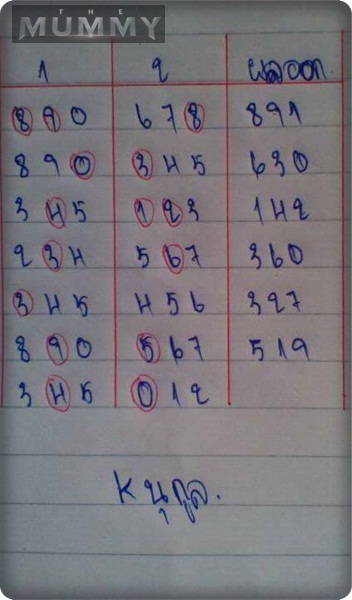 THE
MUMMY
1 2 ผลออก
890 678 891
890 345 630
345 123 142
234 567 360
345 456 327
890 567 519
345 012
K นุกูล.